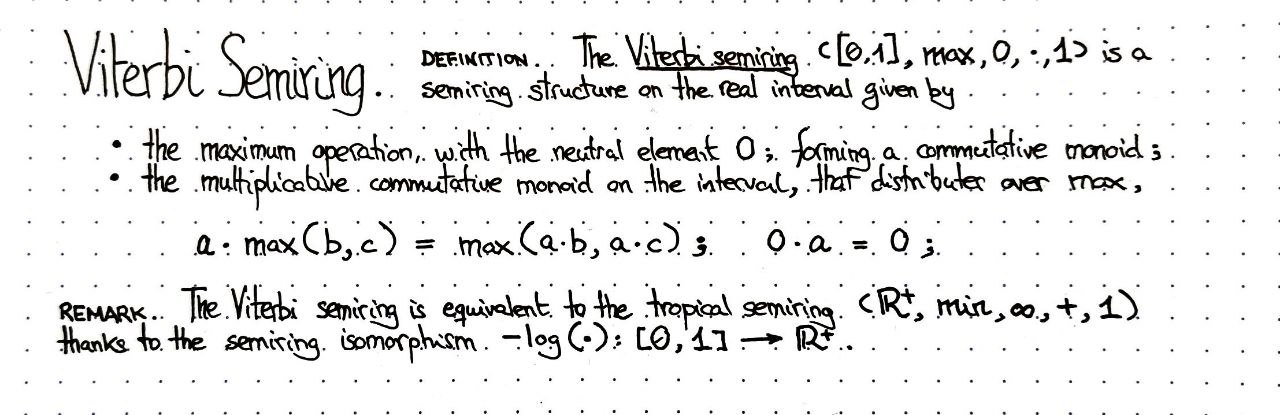 Viterbi Semiring.
DEFINITION. The Viterbi semiring ([0,1], max, 0, ·, 1) is a
semiring structure on the real interval given by
• the maximum operation, with the neutral element 0; forming a commutative monoid;
• the multiplicative commutative monoid on the interval, that distributes over max,
a · max(b,c) = max(a·b, a·c); 0·a = 0;
REMARK. The Viterbi semiring is equivalent to the tropical semiring (ℝ⁺, min, ∞, +, 1)
thanks to the semiring isomorphism -log(·): [0,1] → ℝ⁺.